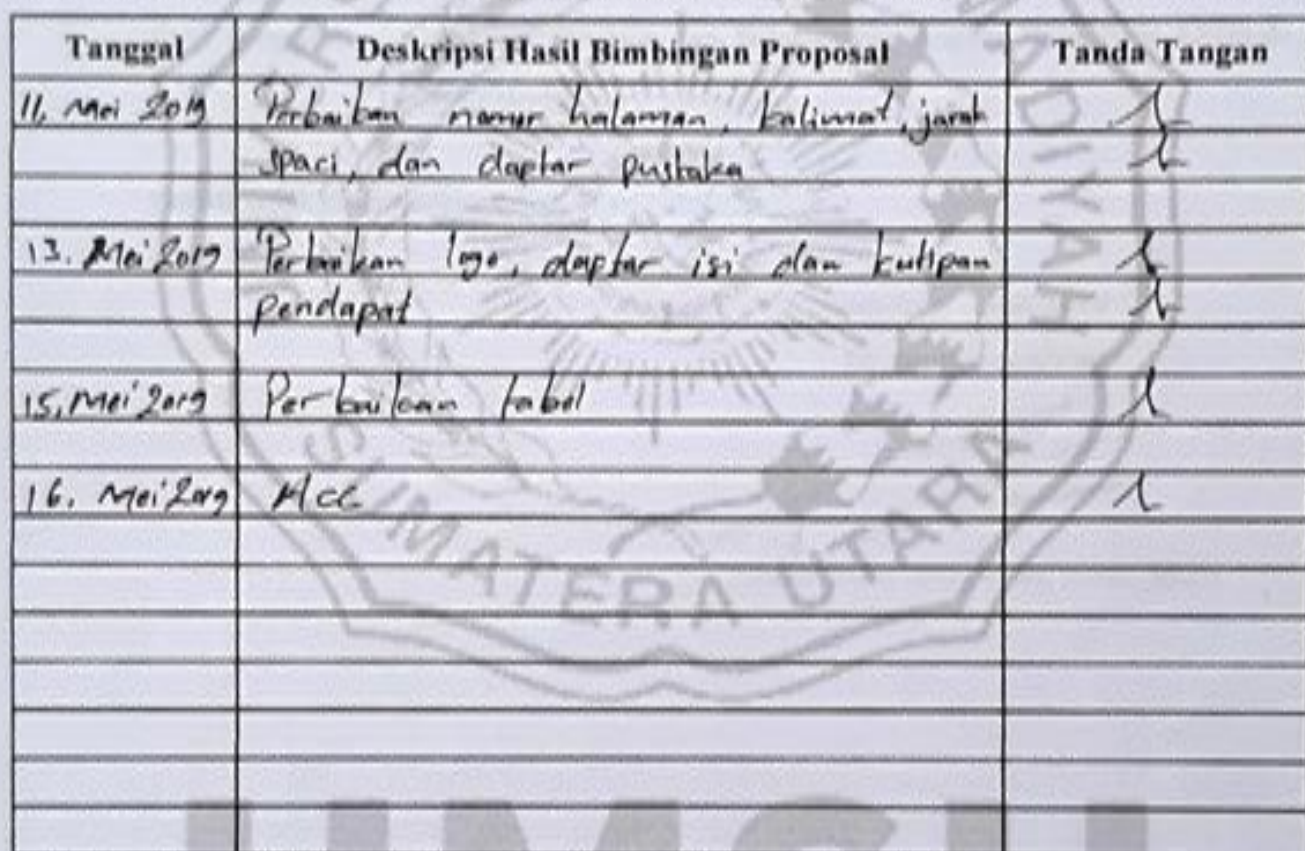 Tanggal Deskripsi Hasil Bimbingan Proposal Tanda Tangan
11, Mei 2019 Perbaikan nomor halaman, kalimat, jarak
spaci, dan daptar pustaka
13. Mei 2019 Perbaikan logo, daptar isi dan kutipan
pendapat
15, Mei 2019 Perbaikan tabel
16. Mei 2019 Acc
SUMATERA UTARA
UMSU